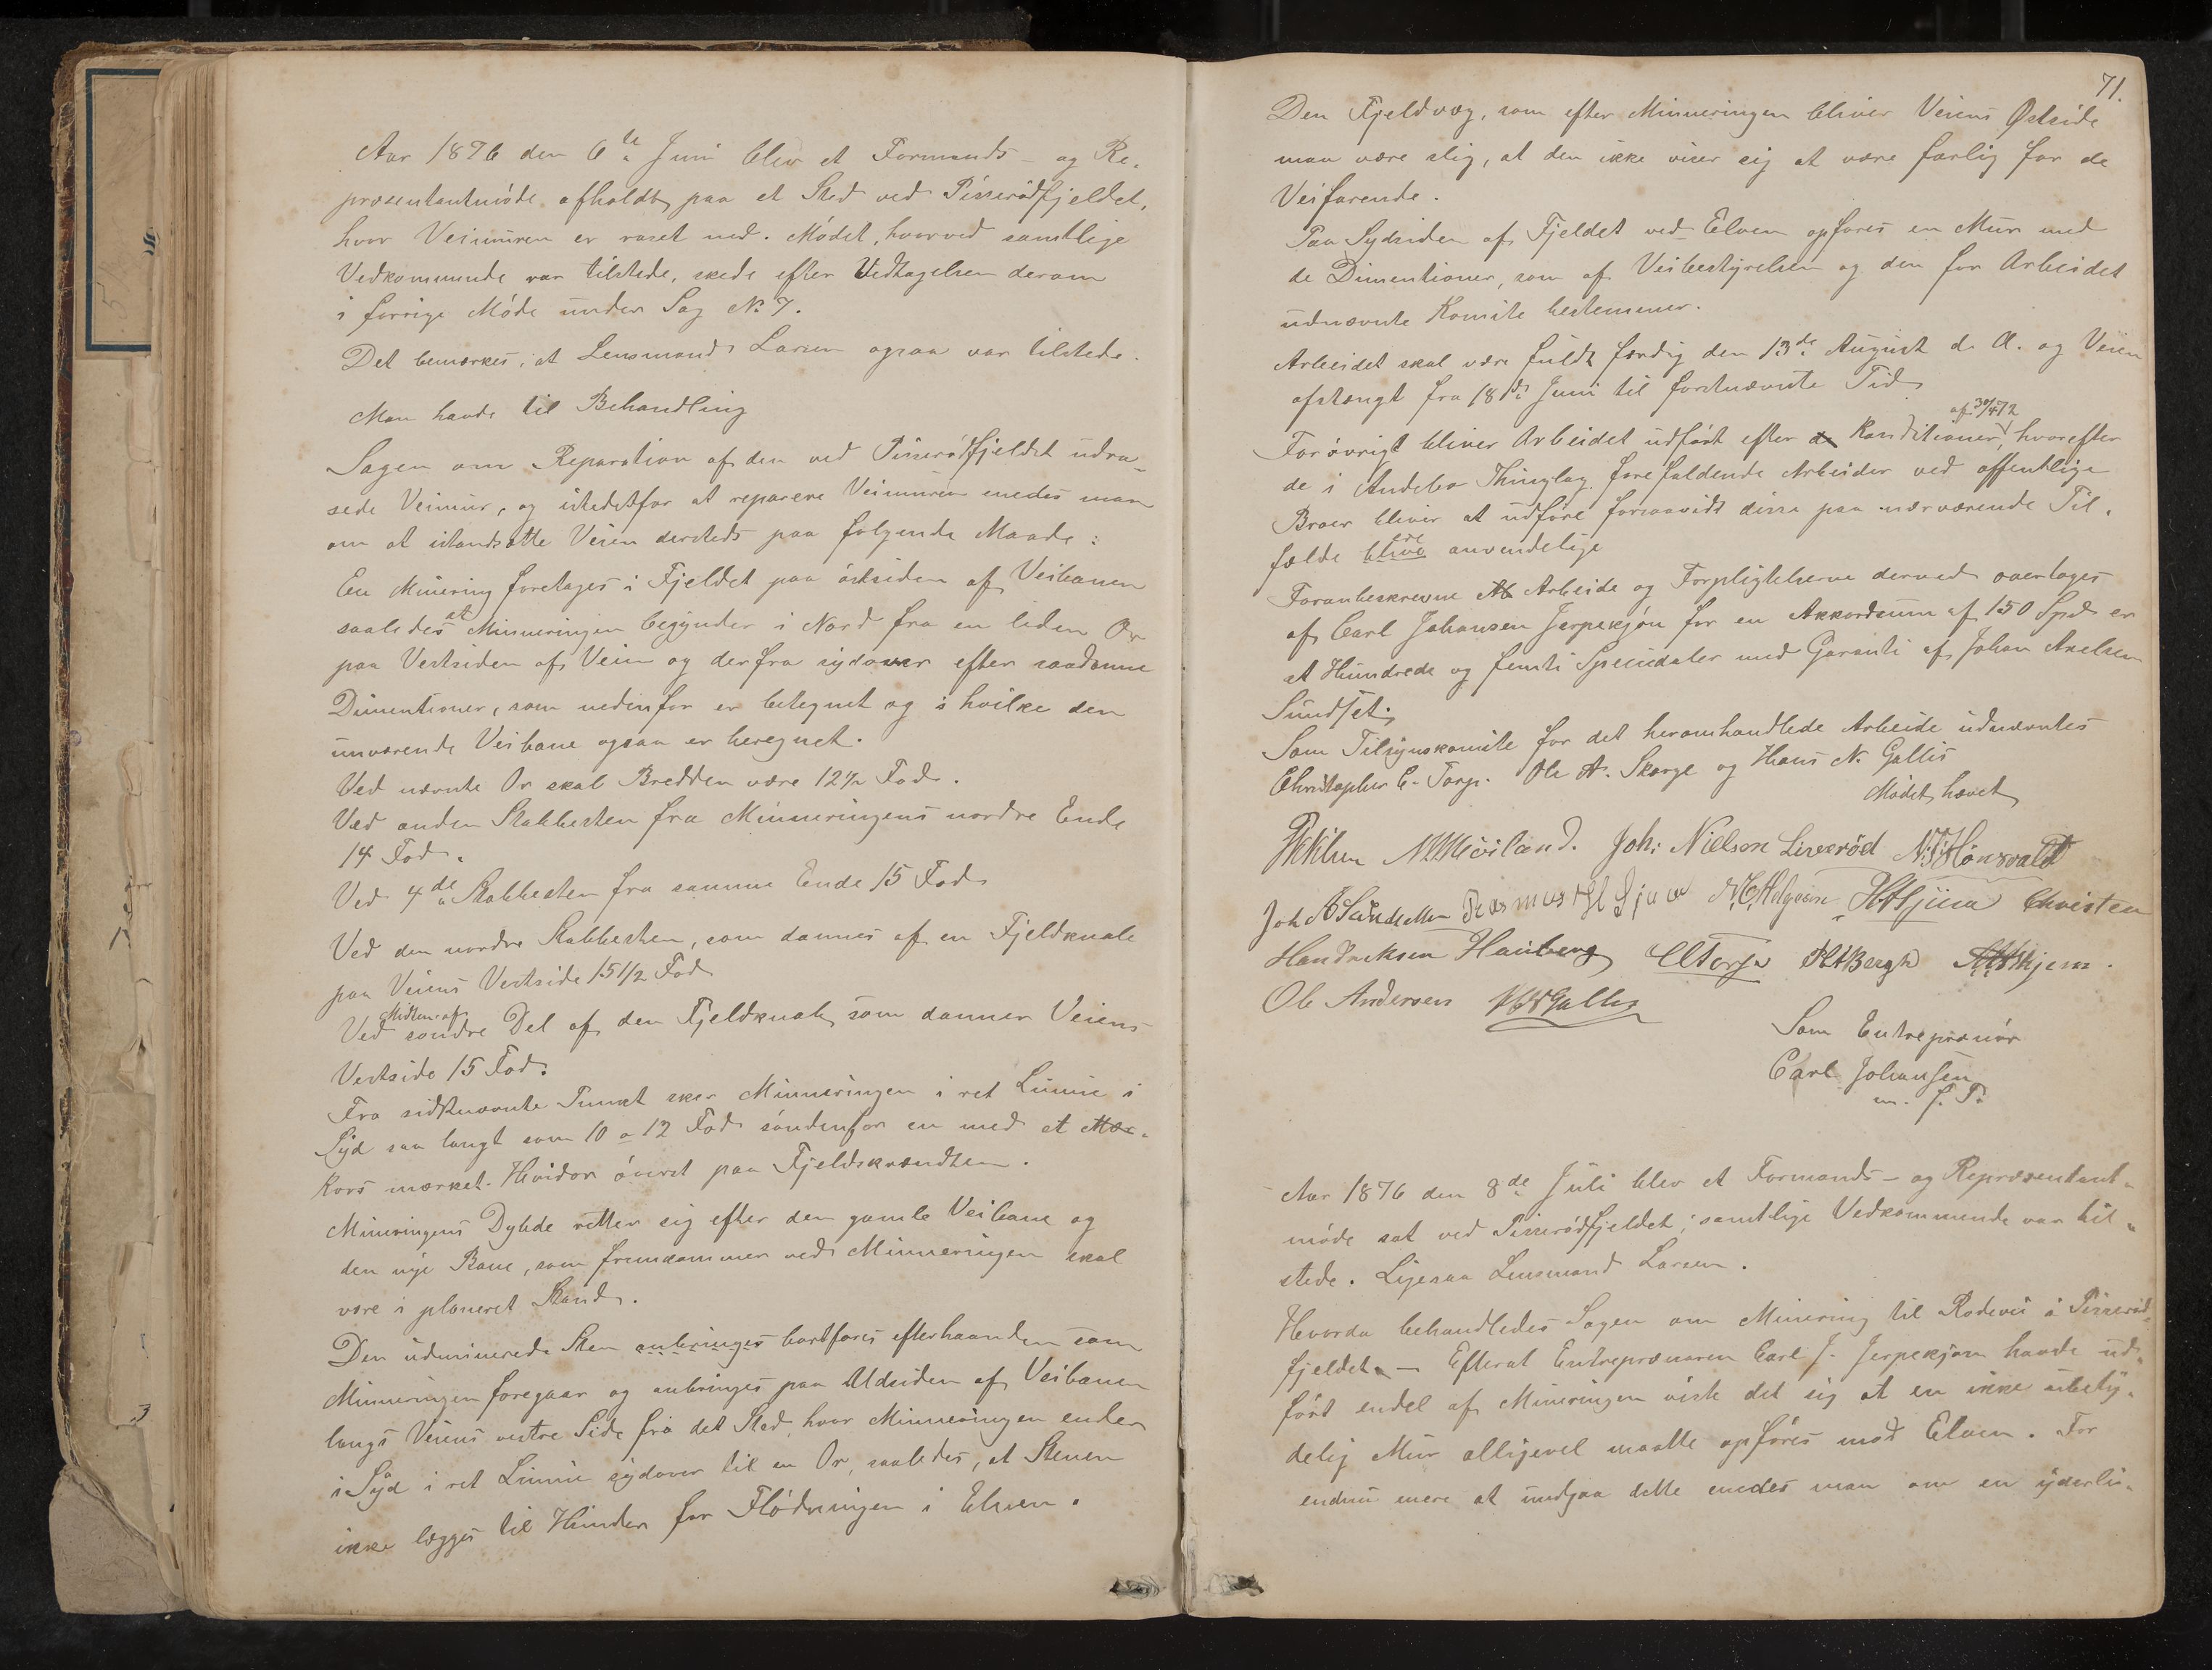 Aar 1876 den 6te Juni blev et Formands- og Re-
præsentantmöde afholdt paa et Sted ved Pisserödfjeldet,
hvor Veimuren er raset ned. Mödet, hvorved samtlige
Vedkommende var tilstede, skede efter Vedtagelsen derom
i forrige Möde under Sag No 7.
Det bemærkes, at Lensmand Larsen ogsaa var tilstede.
Man havde til Behandling
Sagen om Reparation af den ved Pisserödfjeldet udra-
sede Veimur, og istedetfor at reparere Veimuren enedes man
om at istandsætte Veien dersteds paa fölgende Maade:
En Minering foretages i Fjeldet paa östsiden af Veibanen
saaledes at Minneringen begynder i Nord fra en liden Or
paa Vestsiden af Veien og derfra sydover efter saadanne
Dimentioner, som nedenfor er betegnet og i hvilke den
nuværende Veibane ogsaa er beregnet.
Ved nævnte Or skal Bredden være 12½ Fod.
Ved anden Stabbesten fra Minneringens nordre Ende
14 Fod.
Ved 4de Stabbesten fra samme Ende 15 Fod
Ved den nordre Stabbesten, som dannes af en Fjeldknale
paa Veiens Vestside 15 1/2 Fod
Midten af
Ved söndre Del af den Fjeldknale, som danner Veiens
Vestside 15 Fod.
Fra sidstnævnte Punkt sker Minneringen i ret Linnie i
Syd saa langt som 10 a 12 Fod söndenfor en med et Mær-
Kors mærket Hvidor överst paa Fjeldskrændten.
Mineringens Dybde retter sig efter den gamle Veibane og
den nye Bane, som fremkommer ved Minneringen skal
være i planeret Stand.
Den udminerede Sten anbringes bortföres efterhaanden som
Minneringen foregaar og anbringes paa Udsiden af Veibanen
langs Veiens vestre Side fra det Sted, hvor Minneringen ender
i Syd i ret Linnie sydover til en Or, saaledes, at Stenen
ikke lægges til Hinder for Flödningen i Elven.
71.
Den Fjeldvæg, som efter Minneringen bliver Veiens Østside
maa være slig, at den ikke viser sig at være farlig for de
Veifarende.
Paa Sydsiden af Fjeldet ved Elven opföres en Mur med
de Dimentioner, som af Veibestyrelsen og den for Arbeidet
udnævnte Komite bestemmer.
Arbeidet skal være fuldt færdig den 13de August d. A. og Veien
afstængt fra 18de Juni til förstnævnte Tid
af 30/4 72
Forövrigt bliver Arbeidet udfört efter de Konditioner, hvorefter
de i Andebo Thinglag forefaldende Arbeider ved offentlige
Broer bliver at udföre forsaavidt disse paa nærværende Til-
fælde blive anvendelige
Foranbeskrevne Ab Arbeide og Forpligtelserne derved overtages
af Carl Johansen Jerpekjön for en Akkordsum af 150 Spd er
et Hundrede og femti Speciedaler med Garanti af Johan Axelsen
Sundset.
Som Tilsynskomite for det heromhandlede Arbeide udnævntes
Christopher C. Torp. Ole A. Skorge og Hans N. Gallis
Mödet hævet
N M Möiland. Joh: Nielsen Liverröd N. T. Hönsvald
Joh A Sundseth Rasmus H Gjein HA Gjein Christen
Hendreksen Hauberg CC Torp Bergh AA Skjem.
Ole Andersen HN Gallis
Som Entreprenör
Carl Johansen
m. f. P.
Aar 1876 den 8de Juli blev et Formands- og Repræsentant-
möde sat ved Pisserödfjeldet; samtlige Vedkommende var til-
stede. Ligesaa Lensmand Larsen.
Hvorda behandledes Sagen om Minering til Rodevei i Pisseröd-
fjeldet. - Efterat Entreprenören Carl J. Jerpekjön havde ud-
fört endel af Mineringen viste det sig at en ikke ubety-
delig Mur alligevel maatte opföres mod Elven. For
endnu mere at undgaa dette enedes man om en yderli-